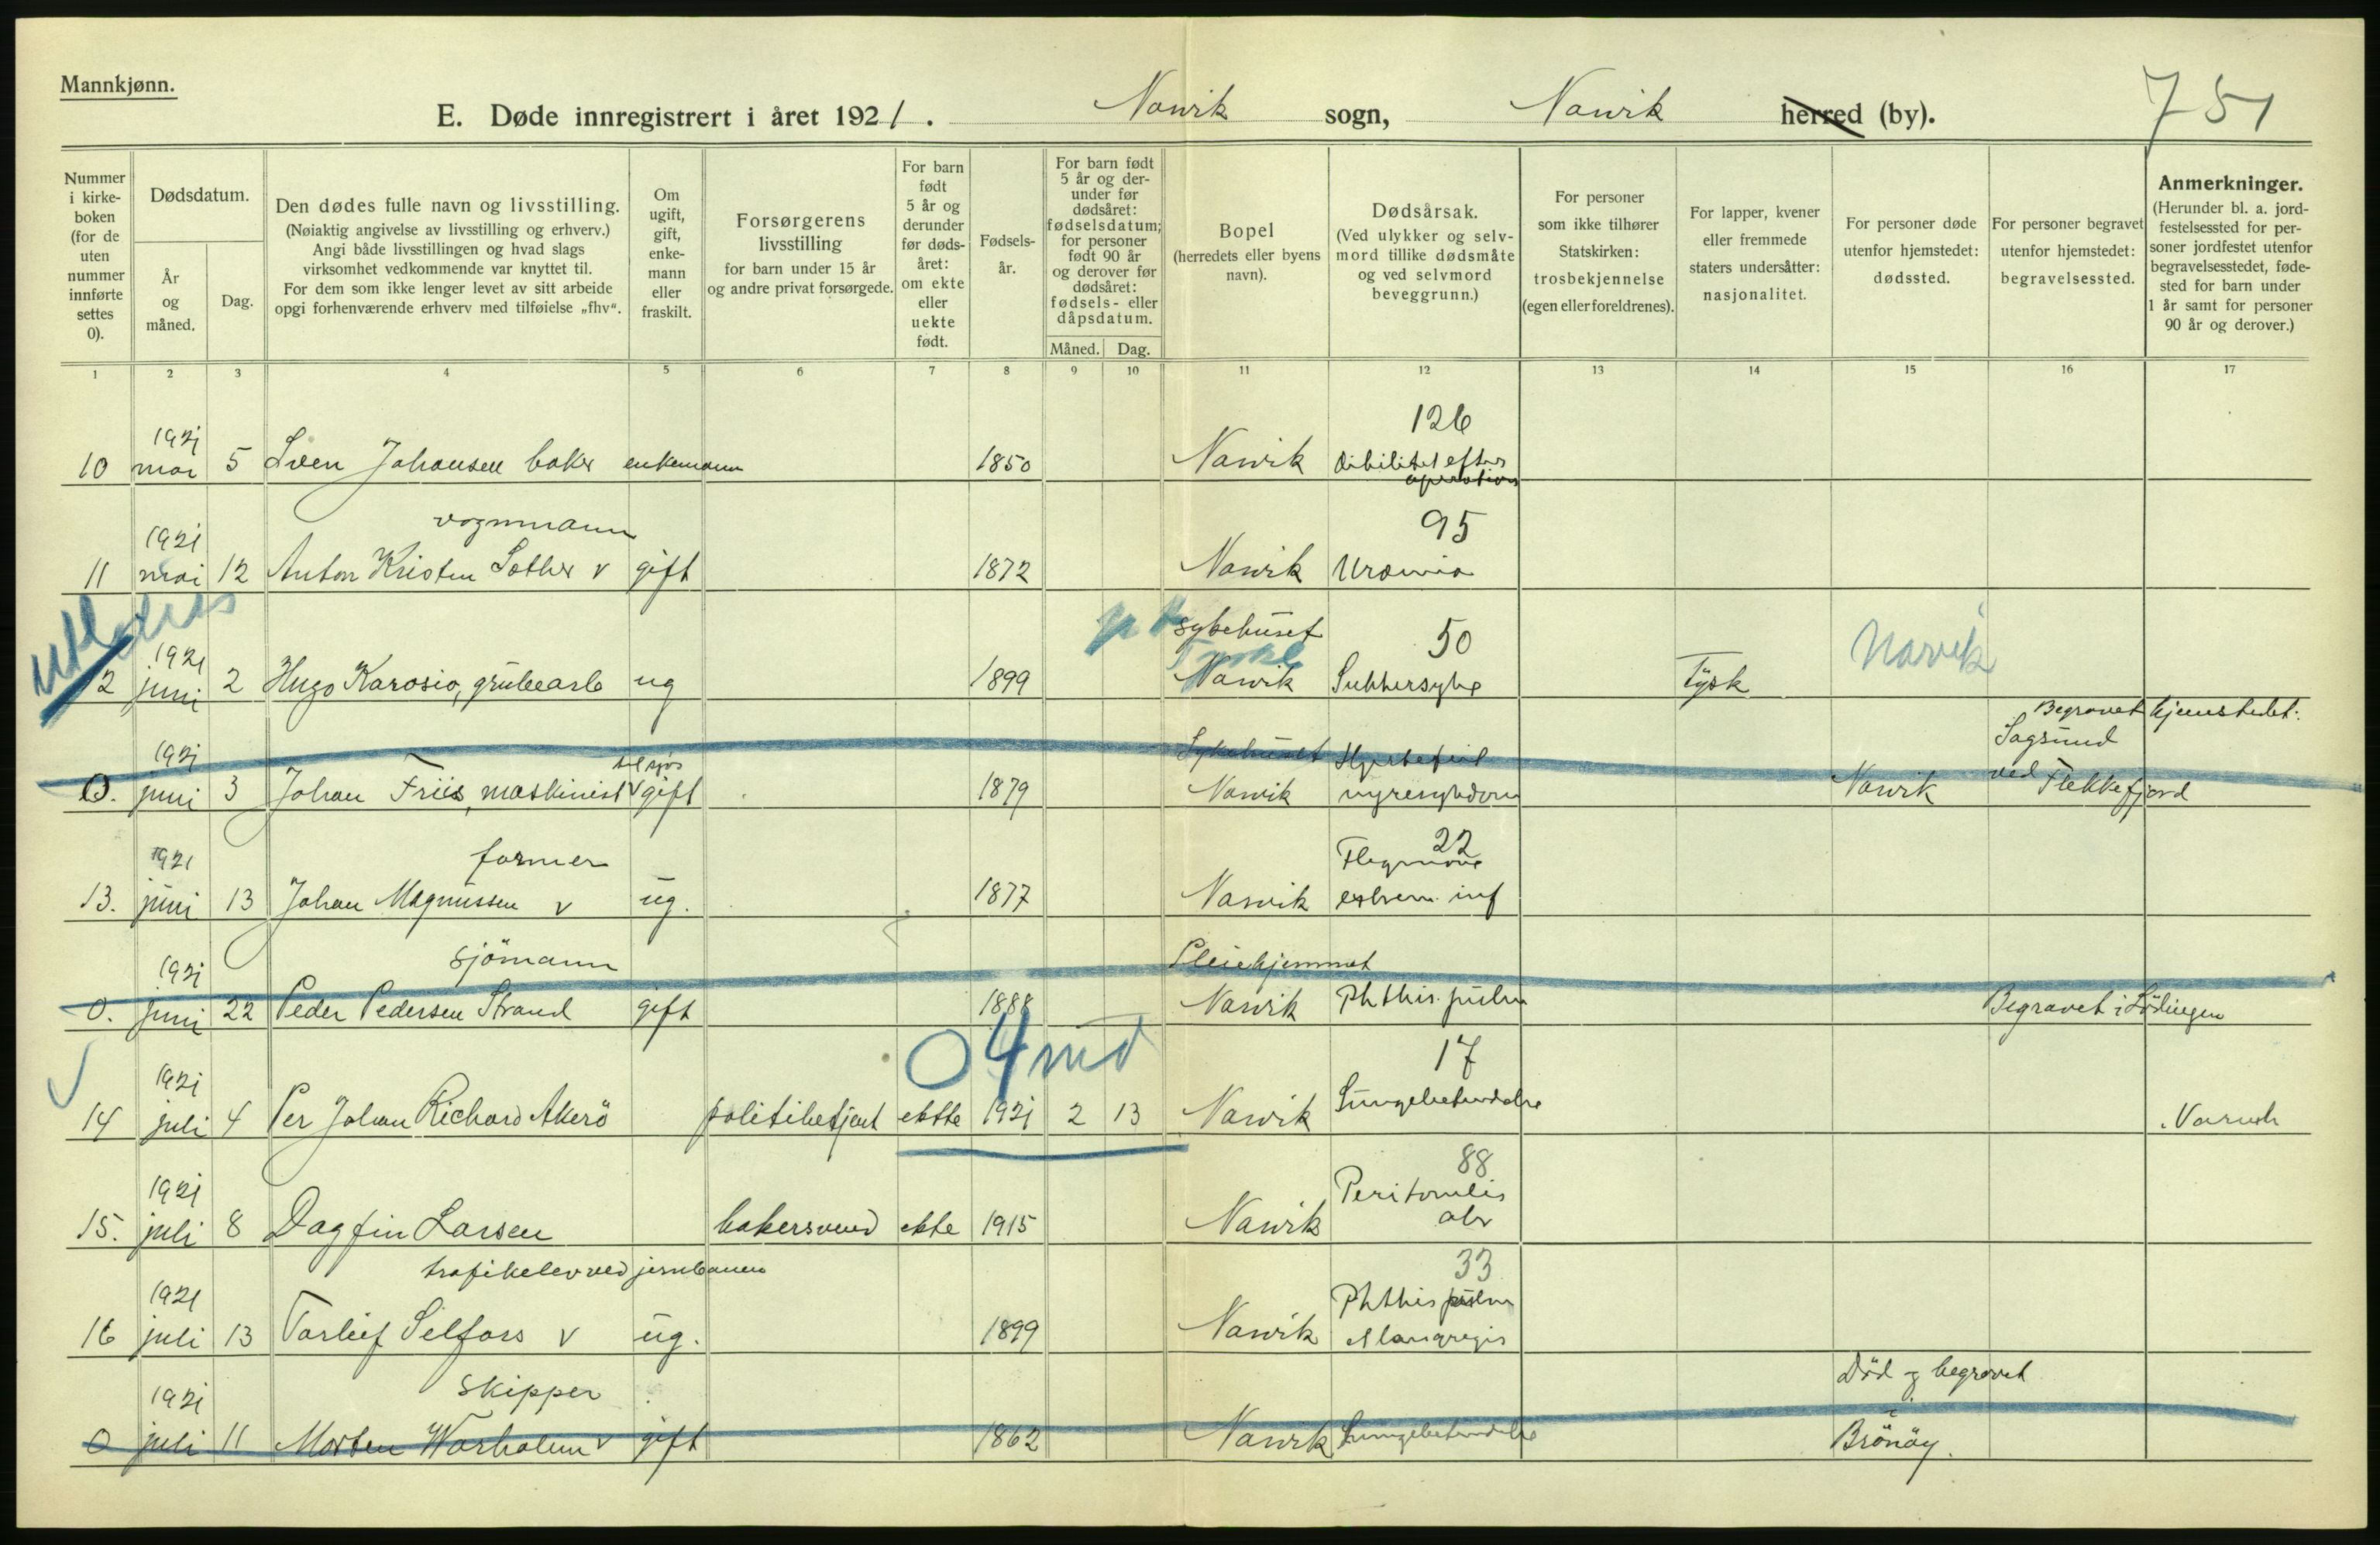 Mannkjønn.
E. Døde innregistrert i året 1921. Narvik sogn, Narvik herred (by). 751
Nummer i kirkeboken (for de uten nummer innførte settes 0).
Dødsdatum.
År og måned.
Dag.
Den dødes fulle navn og livsstilling.
(Nøiaktig angivelse av livsstilling og erhverv.)
Angi både livsstillingen og hvad slags
virksomhet vedkommende var knyttet til.
For dem som ikke lenger levet av sitt arbeide
opgi forhenværende erhverv med tilføielse „fhv“.
Om ugift, gift, enkemann eller fraskilt.
Forsørgerens livsstilling
for barn under 15 år
og andre privat forsørgede.
For barn født 5 år og derunder før dødsåret: om ekte eller uekte født.
Fødselsår.
For barn født 5 år og derunder før dødsåret: fødselsdatum; for personer født 90 år og derover før dødsåret: fødsels- eller dåpsdatum.
Måned. Dag.
Bopel
(herredets eller byens navn).
Dødsårsak.
(Ved ulykker og selvmord tillike dødsmåte og ved selvmord beveggrunn.)
For personer som ikke tilhører Statskirken: trosbekjennelse (egen eller foreldrenes).
For lapper, kvener eller fremmede staters undersåtter: nasjonalitet.
For personer døde utenfor hjemstedet: dødssted.
For personer begravet utenfor hjemstedet: begravelsessted.
Anmerkninger.
(Herunder bl. a. jordfestelsessted for personer jordfestet utenfor begravelsesstedet, fødested for barn under 1 år samt for personer 90 år og derover.)
1 2 3 4 5 6 7 8 9 10 11 12 13 14 15 16 17
1921 126
10 mai 5 Sven Johansen baker enkemann 1850 Narvik debilitet efter
operation
vognmann
1921 95
11 mai 12 Anton Kristen Sather v gift 1872 Narvik Uræmia
utlades
1921 sykehuset 50 Narvik
Tyskl
12 juni 2 Hugo Karosio, grubearb ug 1899 Narvik Sukkersyke Tysk
Begravet hjemstedet:
1921 til sjøs Sykehuset Hjertefeil Sagsund
0. juni 3 Johan Friis, maskinist v gift 1879 Narvik nyresykdom Narvik ved Flekkefjord
1921 former Flegmone 22
13. juni 13 Johan Magnussen v ug. 1877 Narvik extrem. inf
1921 sjömann Pleiehjemmet
0. juni 22 Peder Pedersen Strand gift 1888 Narvik Phthis. pulm Begravet i Lödingen
0 4 md
1921 17
14 juli 4 Per Johan Richard Akerö politibetjent ekte 1921 2 13 Narvik Lungebetendelse Narvik
1921 88
Peritonitis
15. juli 8 Dagfin Larsen bakersvend ekte 1915 Narvik
trafikelev ved jernbanen
1921 33
Phthis pulm
16 juli 13 Torleif Silfors v ug. 1899 Narvik & laryngis
1921 skipper Död og begravet
i
0 juli 11 Morten Warholm v gift 1862 Narvik Lungebetendelse Brönöy.